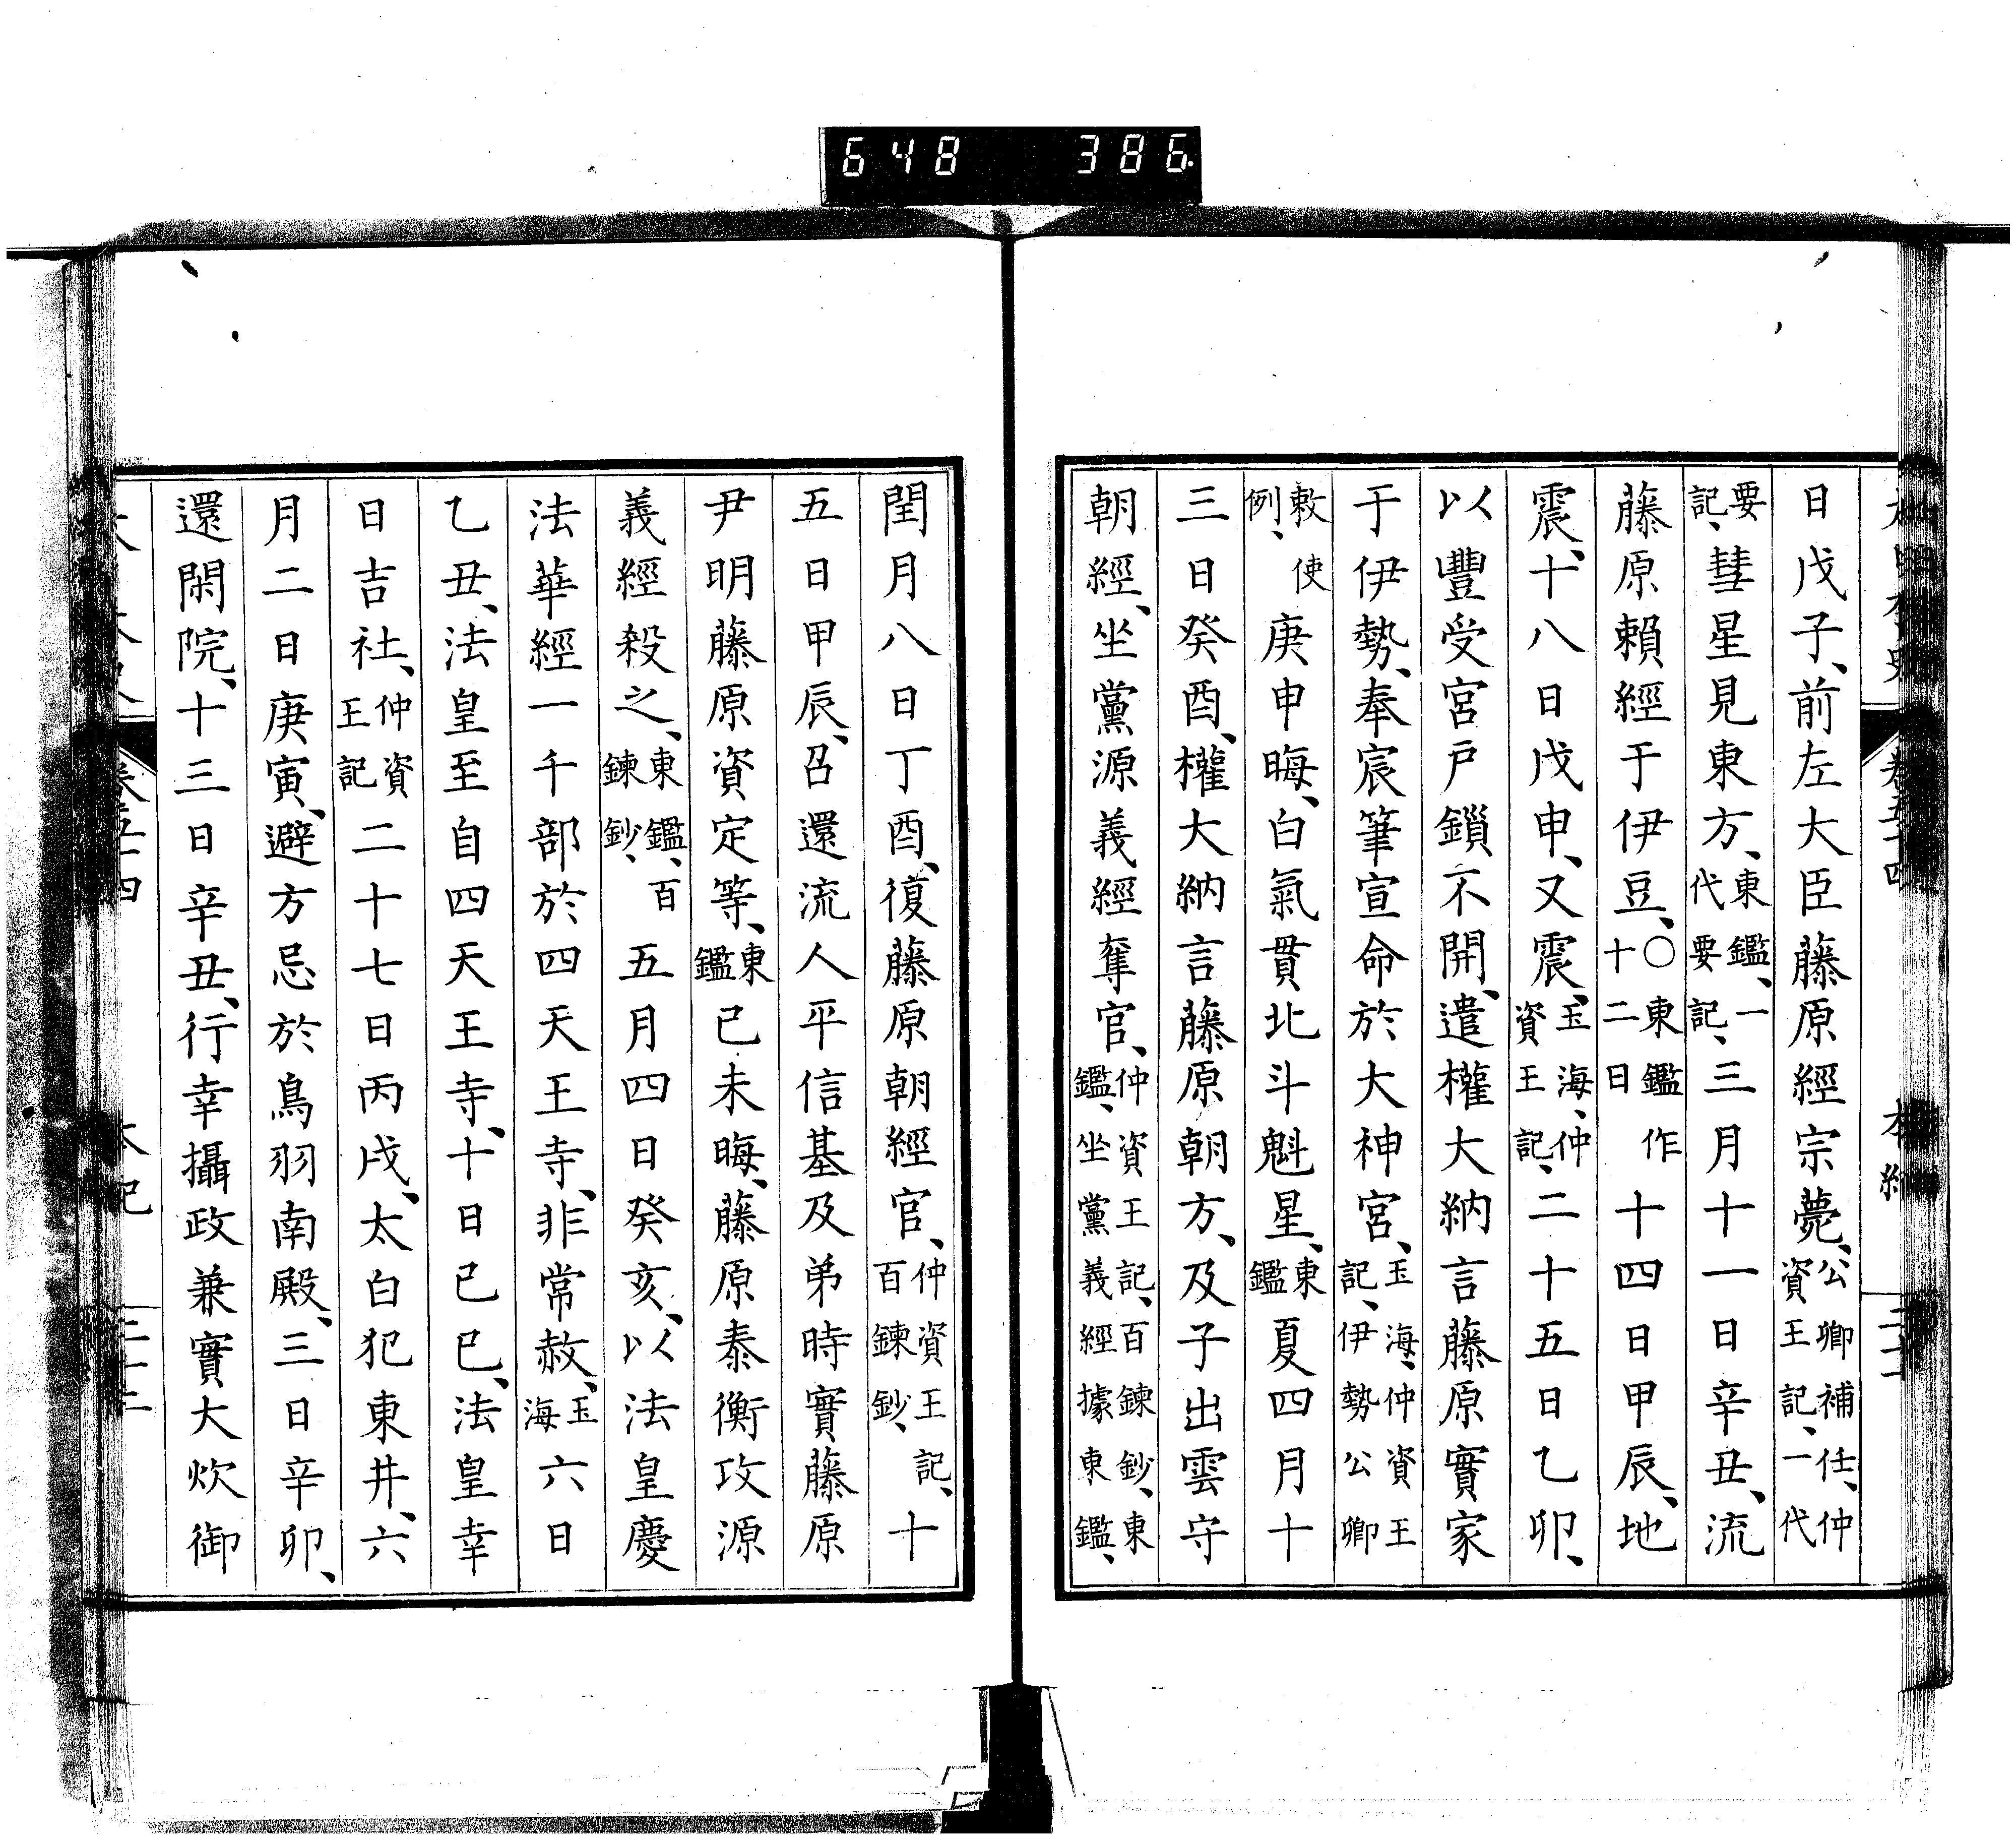 648 386
日戊子、前左大臣藤原經宗薨、公卿補任、仲資王記、一代
要記、彗星見東方、東鑑、一代要記、三月十一日辛丑、流
藤原賴經于伊豆、〇東鑑作十二日十四日甲辰、地
震、十八日戊申、又震、玉海、仲資王記、二十五日乙卯、
以豐受宮戸鎖不開、遣權大納言藤原實家
于伊勢、奉宸筆宣命於大神宮、玉海、仲資王記、伊勢公卿
敕使例、庚申晦、白氣貫北斗魁星、東鑑夏四月十
三日癸酉、權大納言藤原朝方、及子出雲守
朝經、坐黨源義經奪官、仲資王記、百鍊鈔、東鑑、坐黨義經據東鑑、
閏月八日丁酉、復藤原朝經官、仲資王記、百鍊鈔、十
五日甲辰、召還流人平信基及弟時實藤原
尹明藤原資定等、東鑑己未晦、藤原泰衡攻源
義經殺之、東鑑、百鍊鈔、五月四日癸亥、以法皇慶
法華經一千部於四天王寺、非常赦、玉海六日
乙丑、法皇至自四天王寺、十日己巳、法皇幸
日吉社、仲資王記二十七日丙戌、太白犯東井、六
月二日庚寅、避方忌於鳥羽南殿、三日辛卯、
還閑院、十三日辛丑、行幸攝政兼實大炊御